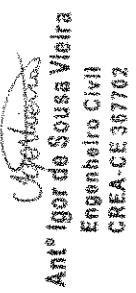 Antº Igor de Sousa Vieira
Engenheiro Civil
CREA-CE 307702